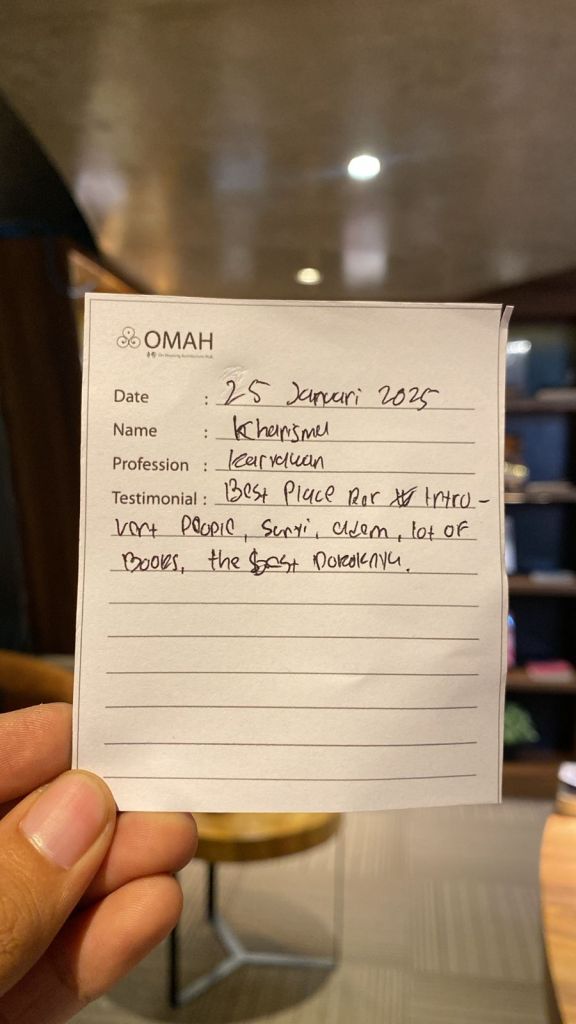 OMAH
Date : 25 Januari 2025
Name : Kharisma
Profession : karyawan
Testimonial : Best Place For Intro-
vert People, Sunyi, adem, lot OF
Books, the best Pokoknya.